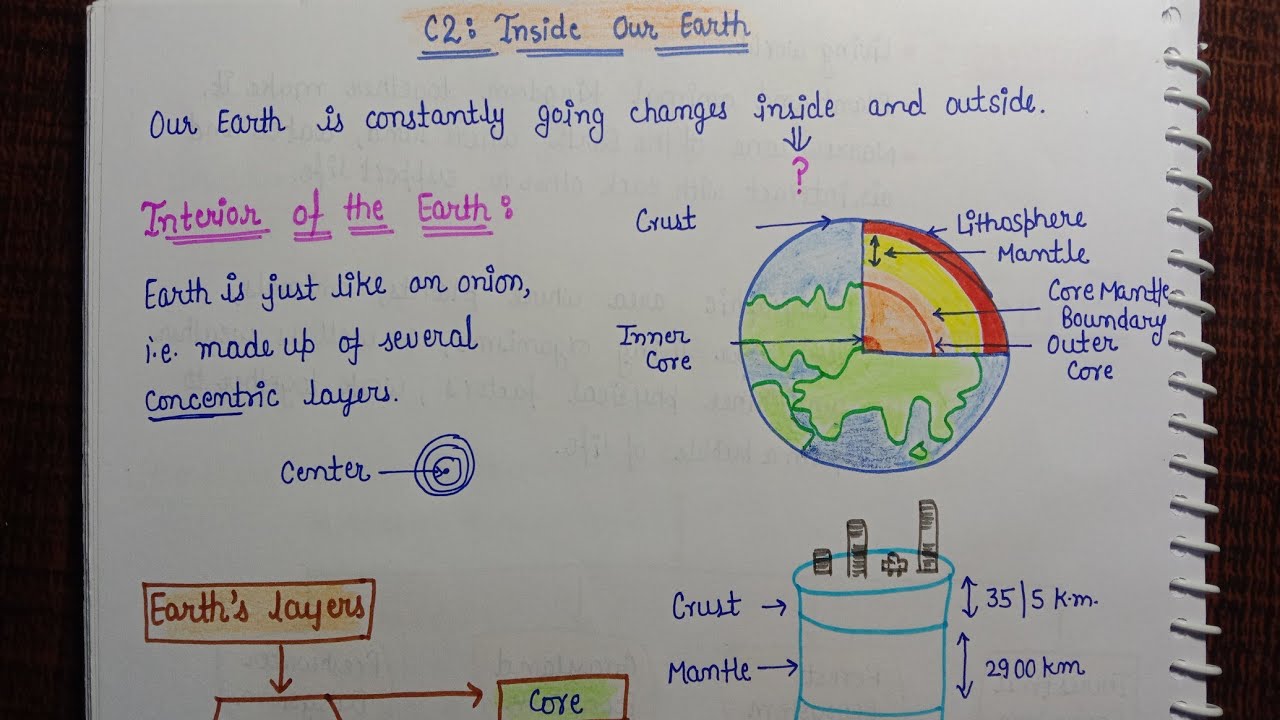 C2: Inside Our Earth
Our Earth is constantly going changes inside and outside.
?
Interior of the Earth:
Earth is just like an onion,
i.e. made up of several
concentric layers.
Center
Crust
Inner
Core
Lithosphere
Mantle
Core Mantle
Boundary
Outer
Core
Earth's layers
Core
Crust
35/5 k.m.
Mantle
2900 km